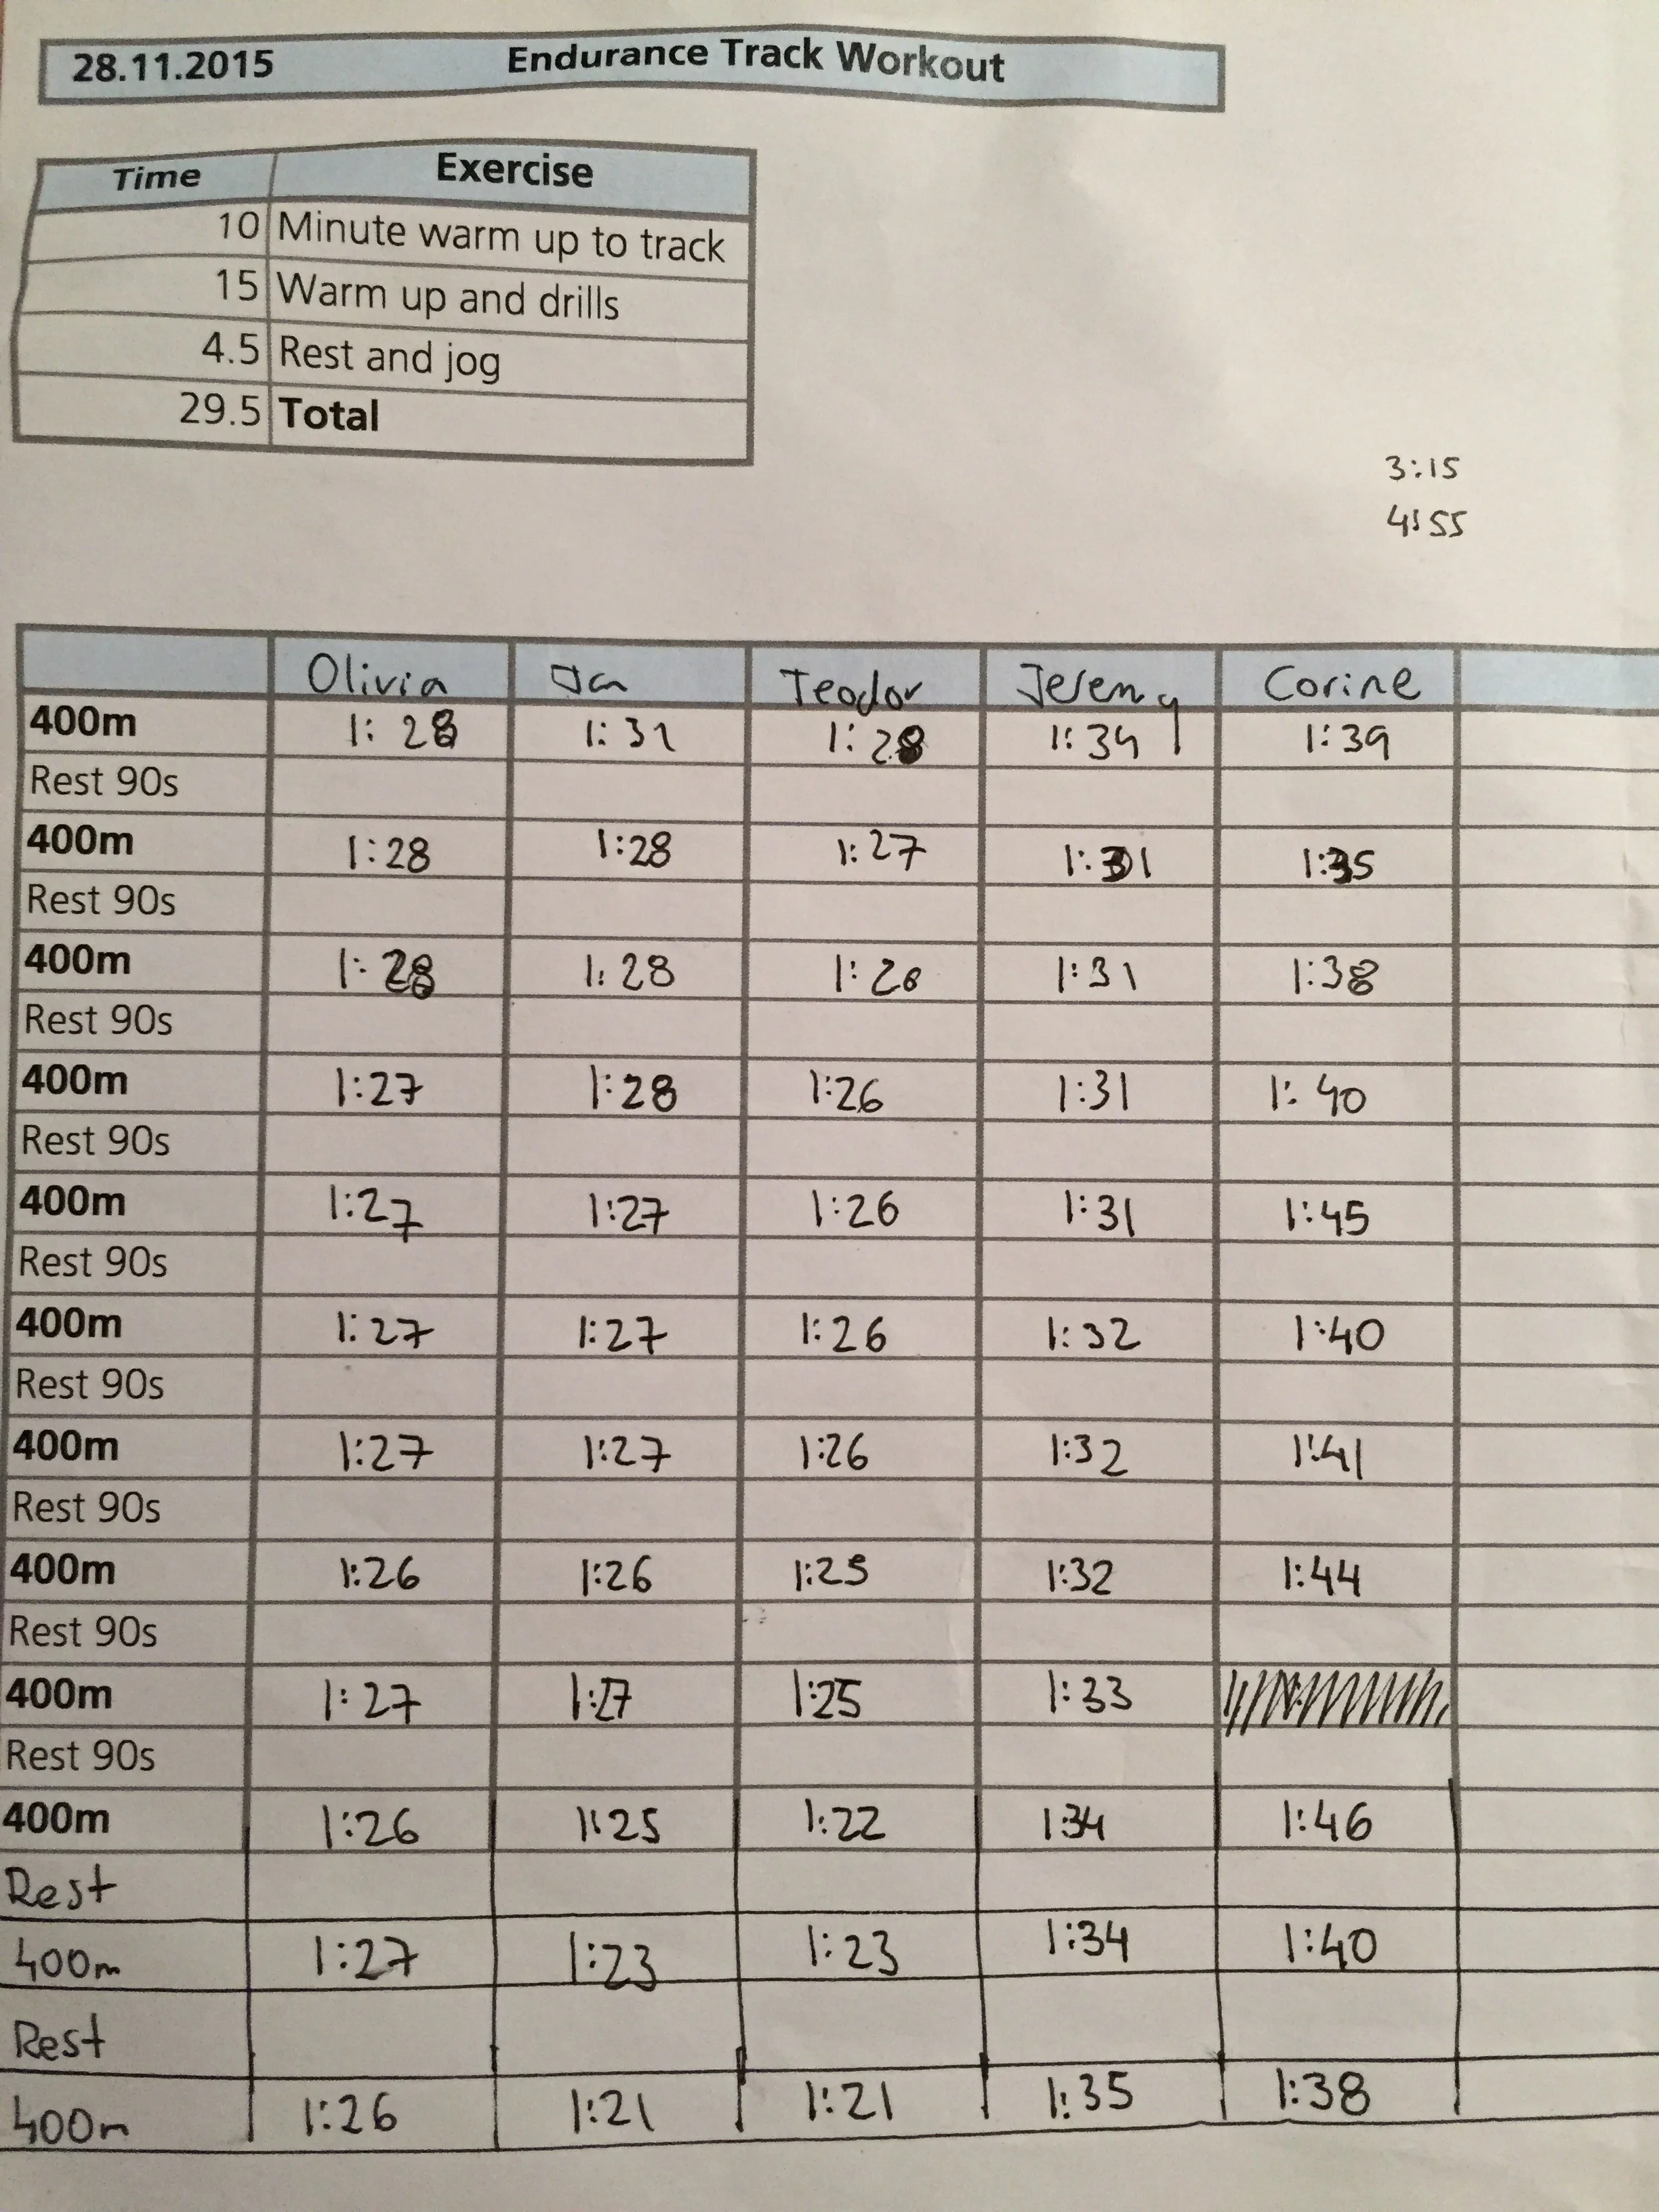 28.11.2015 Endurance Track Workout
Time Exercise
10 Minute warm up to track
15 Warm up and drills
4.5 Rest and jog
29.5 Total
3:15
4:55
Olivia Jan Teodor Jeremy Corine
400m 1:28 1:31 1:28 1:34 1:39
Rest 90s
400m 1:28 1:28 1:27 1:31 1:35
Rest 90s
400m 1:28 1:28 1:26 1:31 1:38
Rest 90s
400m 1:27 1:28 1:26 1:31 1:40
Rest 90s
400m 1:27 1:27 1:26 1:31 1:45
Rest 90s
400m 1:27 1:27 1:26 1:32 1:40
Rest 90s
400m 1:27 1:27 1:26 1:32 1:41
Rest 90s
400m 1:26 1:26 1:25 1:32 1:44
Rest 90s
400m 1:27 1:27 1:25 1:33
Rest 90s
400m 1:26 1:25 1:22 1:34 1:46
Rest
400m 1:27 1:23 1:23 1:34 1:40
Rest
400m 1:26 1:21 1:21 1:35 1:38